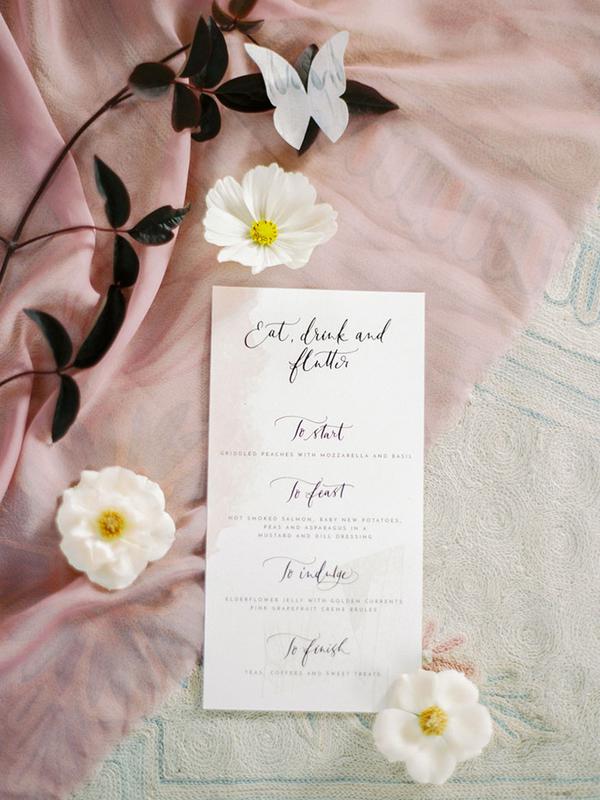 Eat, drink and
flutter
To start
GRIDDLED PEACHES WITH MOZZARELLA AND BASIL
To feast
HOT SMOKED SALMON, BABY NEW POTATOES,
PEAS AND ASPARAGUS IN A
MUSTARD AND DILL DRESSING
To indulge
ELDERFLOWER JELLY WITH GOLDEN CURRENTS
PINK GRAPEFRUIT CREME BRULEE
To finish
TEAS, COFFEES AND SWEET TREATS